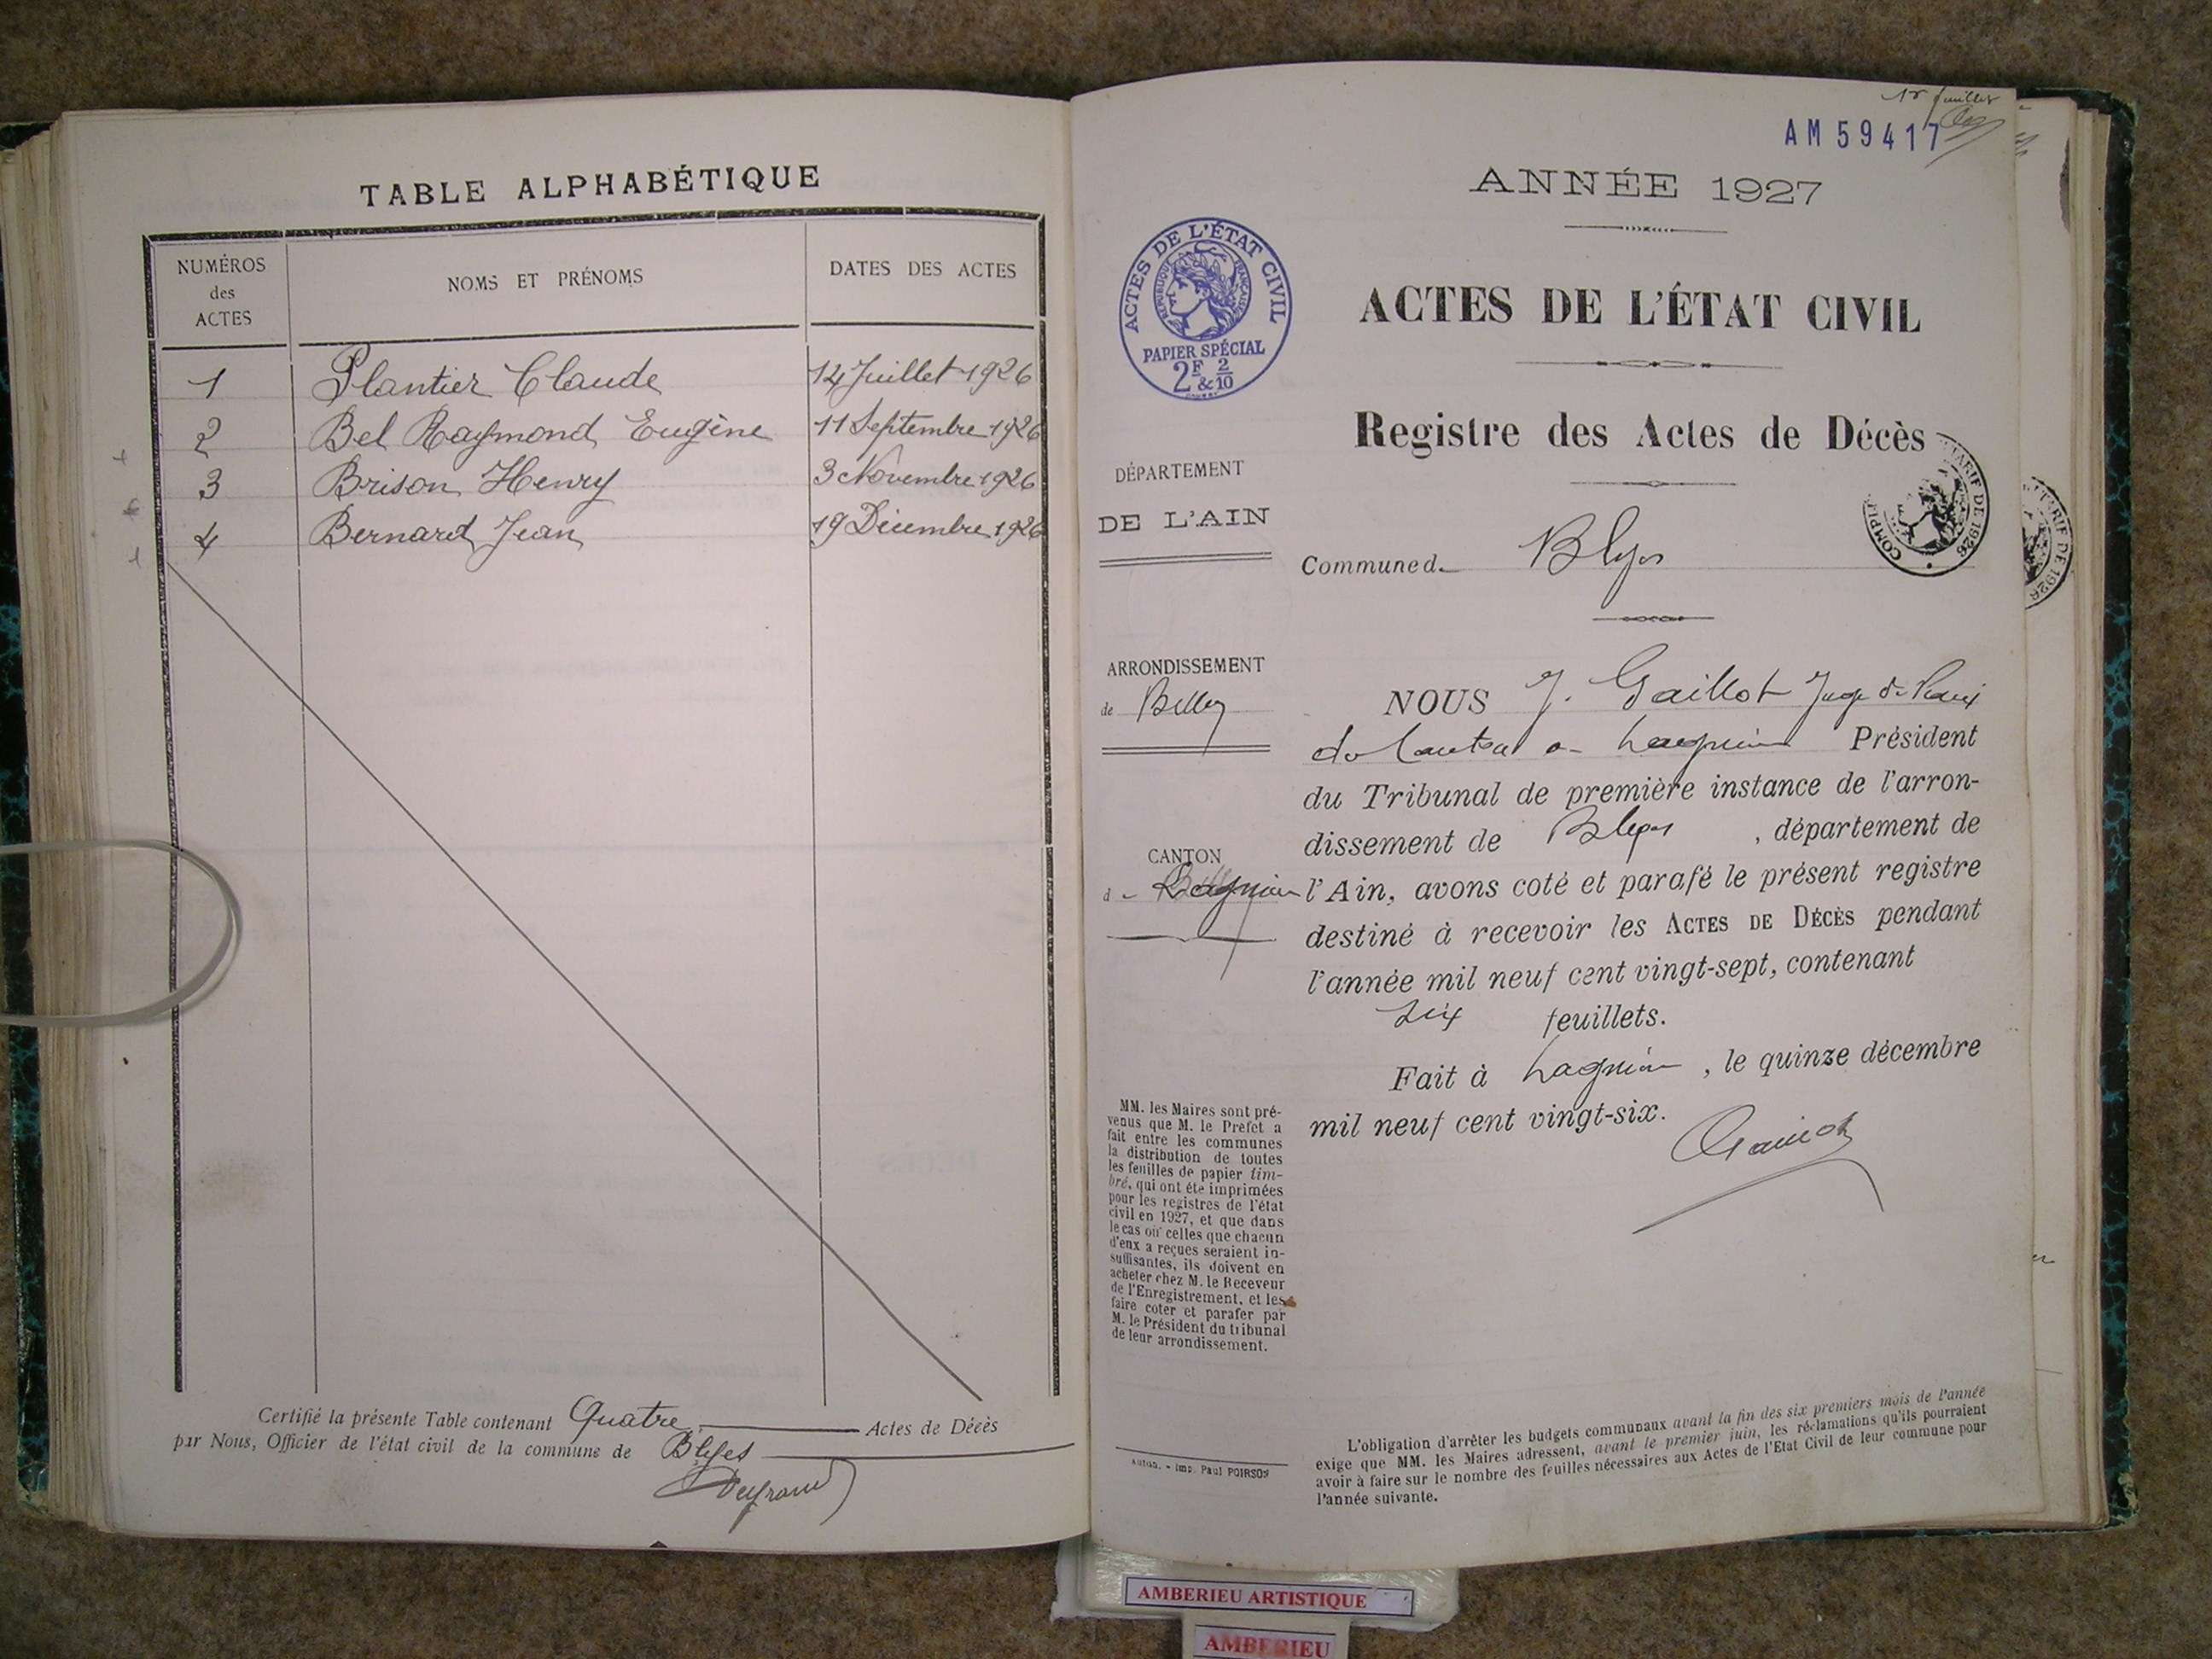 TABLE ALPHABÉTIQUE
NUMÉROS des ACTES
NOMS ET PRÉNOMS
DATES DES ACTES
1 Plantier Claude 14 Juillet 1926
2 Bel Raymond Eugène 11 Septembre 1926
3 Brison Henry 3 Novembre 1926
4 Bernard Jean 19 Décembre 1926
Certifié la présente Table contenant Quatre Actes de Décès
par Nous, Officier de l'état civil de la commune de Blyes
1er feuillet
AM59417
ANNÉE 1927
ACTES DE L'ÉTAT CIVIL
RÉPUBLIQUE FRANÇAISE
PAPIER SPÉCIAL
2F & 2/10
ACTES DE L'ÉTAT CIVIL
Registre des Actes de Décès
TARIF DE 1926
DÉPARTEMENT
DE L'AIN
Commune d. Blyes
ARRONDISSEMENT
de Belley
CANTON
d Lagnieu
NOUS J. Gaillot Juge de Paix
du Canton de Lagnieu Président
du Tribunal de première instance de l'arron-
dissement de Blyes, département de
l'Ain, avons coté et parafé le présent registre
destiné à recevoir les ACTES DE DÉCÈS pendant
l'année mil neuf cent vingt-sept, contenant
six feuillets.
Fait à Lagnieu, le quinze décembre
mil neuf cent vingt-six.
MM. les Maires sont pré-
venus que M. le Préfet a
fait entre les communes
la distribution de toutes
les feuilles de papier tim-
bré, qui ont été imprimées
pour les registres de l'état
civil en 1927, et que dans
le cas où celles que chacun
d'eux a reçues seraient in-
suffisantes, ils doivent en
acheter chez M. le Receveur
de l'Enregistrement, et les
faire coter et parafer par
M. le Président du tribunal
de leur arrondissement.
Imp. Paul POIRSON
L'obligation d'arrêter les budgets communaux avant la fin des six premiers mois de l'année
exige que MM. les Maires adressent, avant le premier juin, les réclamations qu'ils pourraient
avoir à faire sur le nombre des feuilles nécessaires aux Actes de l'Etat Civil de leur commune pour
l'année suivante.
AMBERIEU ARTISTIQUE
AMBERIEU